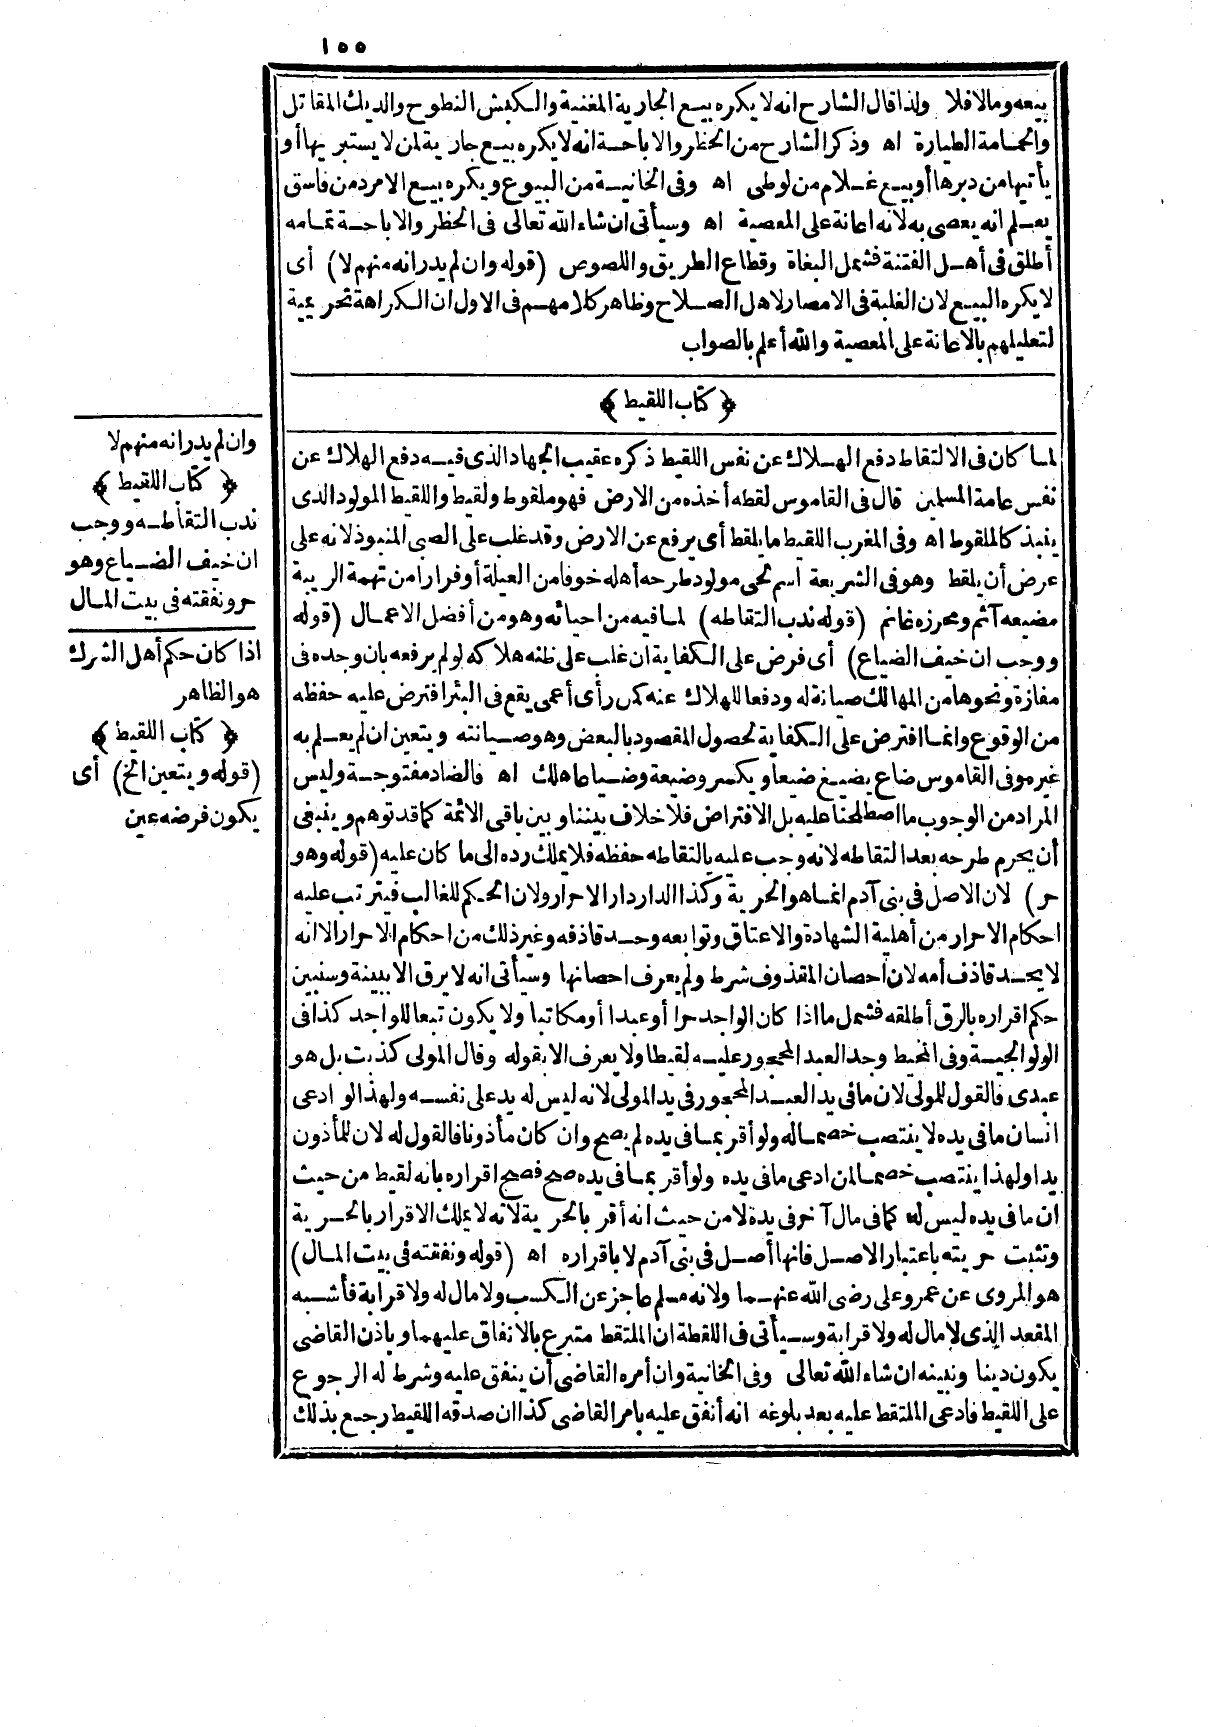 ١٥٥
بيعه ومالا فلا ولذا قال الشارح انه لا يكره بيع الجارية المغنية والكبش النطوح والديك المقاتل
والحمامة الطيارة اه وذكر الشارح من الحظر والاباحة انه لا يكره بيع جارية لمن لا يستبريها أو
يأتيها من دبرها أو بيع غلام من لوطى اه وفى الخانية من البيوع ويكره بيع الامرد من فاسق
يعلم انه يعصى به لانه اعانة على المعصية اه وسيأتى ان شاء الله تعالى فى الحظر والاباحة تمامه
أطلق فى أهل الفتنة فشمل البغاة وقطاع الطريق واللصوص (قوله وان لم يدر انه منهم لا) أى
لا يكره البيع لان الغلبة فى الامصار لاهل الصلاح وظاهر كلامهم فى الاول ان الكراهة تحريمية
لتعليلهم بالاعانة على المعصية والله أعلم بالصواب
﴿كتاب اللقيط﴾
لما كان فى الالتقاط دفع الهلاك عن نفس اللقيط ذكره عقيب الجهاد الذى فيه دفع الهلاك عن
نفس عامة المسلمين قال فى القاموس لقطه أخذه من الارض فهو ملقوط ولقيط واللقيط المولود الذى
ينبذ كالملقوط اه وفى المغرب اللقيط ما يلقط أى يرفع عن الارض وقد غلب على الصبى المنبوذ لانه على
عرض أن يلقط وهو فى الشريعة اسم لحى مولود طرحه أهله خوفا من العيلة أو فرارا من تهمة الريبة
مضيعه آثم ومحرزه غانم (قوله ندب التقاطه) لما فيه من احيائه وهو من أفضل الاعمال (قوله
ووجب ان خيف الضياع) أى فرض على الكفاية ان غلب على ظنه هلاكه لو لم يرفعه بان وجده فى
مفازة ونحوها من المهالك صيانة له ودفعا للهلاك عنه كمن رأى أعمى يقع فى البئر افترض عليه حفظه
من الوقوع وانما افترض على الكفاية لحصول المقصود بالبعض وهو صيانته ويتعين ان لم يعلم به
غيره وفى القاموس ضاع يضيع ضيعا ويكسر وضيعة وضياعا هلك اه فالضاد مفتوحة وليس
المراد من الوجوب ما اصطلحنا عليه بل الافتراض فلا خلاف بيننا وبين باقى الائمة كما قد توهم وينبغى
أن يحرم طرحه بعد التقاطه لانه وجب عليه بالتقاطه حفظه فلا يملك رده الى ما كان عليه (قوله وهو
حر) لان الاصل فى بنى آدم انما هو الحرية وكذا الدار دار الاحرار ولان الحكم للغالب فيترتب عليه
احكام الاحرار من أهلية الشهادة والاعتاق وتوابعه وحد قاذفه وغير ذلك من احكام الاحرار الا انه
لا يحد قاذف أمه لان احصان المقذوف شرط ولم يعرف احصانها وسيأتى انه لا يرق الا ببينة وسنبين
حكم اقراره بالرق أطلقه فشمل ما اذا كان الواجد حرا أو عبدا أو مكاتبا ولا يكون تبعا للواجد كذا فى
الولوالجية وفى المحيط وجد العبد المحجور عليه لقيطا ولا يعرف الا بقوله وقال المولى كذبت بل هو
عبدى فالقول للمولى لان ما فى يد العبد المحجور فى يد المولى لانه ليس له يد على نفسه ولهذا لو ادعى
انسان ما فى يده لا ينتصب خصما له ولو أقر بما فى يده لم يصح وان كان مأذونا فالقول له لان للمأذون
يدا ولهذا ينتصب خصما لمن ادعى ما فى يده ولو أقر بما فى يده صح فصح اقراره بانه لقيط من حيث
ان ما فى يده ليس له كما فى مال آخر فى يده لا من حيث انه أقر بالحرية لانه لا يملك الاقرار بالحرية
وتثبت حريته باعتبار الاصل فانها أصل فى بنى آدم لا باقراره اه (قوله ونفقته فى بيت المال)
هو المروى عن عمر وعلى رضى الله عنهما ولانه مسلم عاجز عن الكسب ولا مال له ولا قرابة فأشبه
المقعد الذى لا مال له ولا قرابة وسيأتى فى اللقطة ان الملتقط متبرع بالانفاق عليهما وباذن القاضى
يكون دينا ونبينه ان شاء الله تعالى وفى الخانية وان أمره القاضى أن ينفق عليه وشرط له الرجوع
على اللقيط فادعى الملتقط عليه بعد بلوغه انه أنفق عليه بامر القاضى كذا ان صدقه اللقيط رجع بذلك
وان لم يدر انه منهم لا
﴿كتاب اللقيط﴾
ندب التقاطه ووجب
ان خيف الضياع وهو
حر ونفقته فى بيت المال
اذا كان حكم أهل الشرك
هو الظاهر
﴿كتاب اللقيط﴾
(قوله ويتعين الخ) أى
يكون فرضه عين